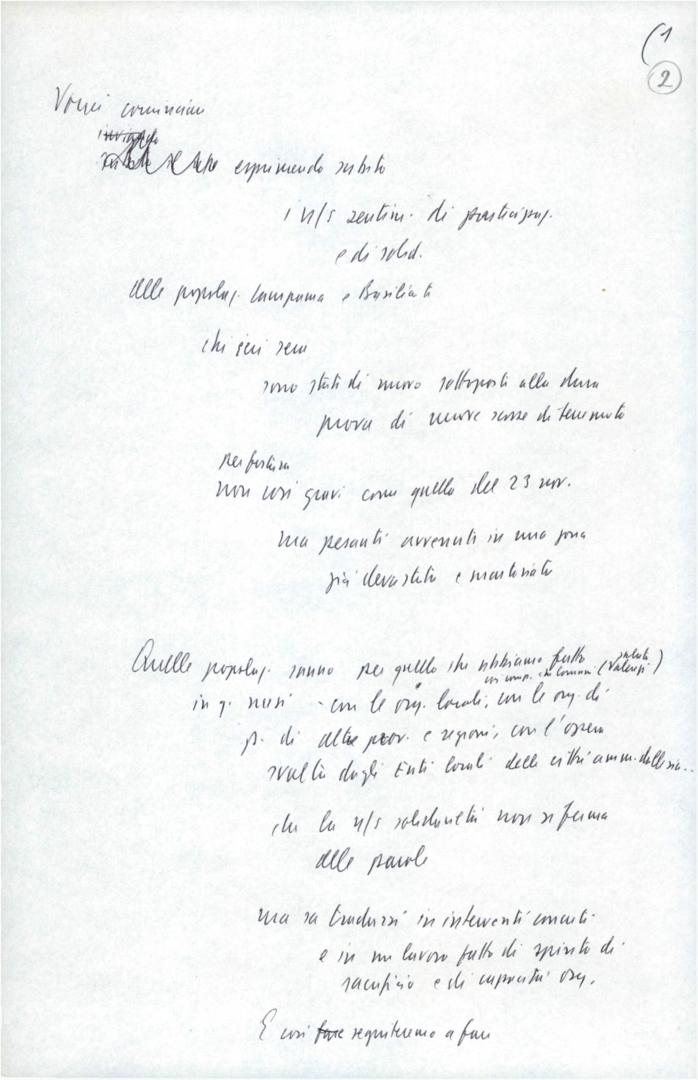 (1
2
Vorrei cominciare
esprimendo subito
i n/s sentim. di partecipaz.
e di solid.
alle popolaz. Campania e Basilicata
che ieri sera
sono stati di nuovo sottoposti alla dura
prova di nuove scosse di terremoto
per fortuna
non così gravi come quella del 23 nov.
ma pesanti avvenuti in una zona
già devastata e martoriata
Quelle popolaz. sanno per quello che abbiamo fatto
in q. mesi - con le org. locali, con le org. di
p. di altre prov. e regioni, con l'opera
svolta dagli Enti locali delle città amm. dalla sin..
che la n/s solidarietà non si ferma
alle parole
ma sa tradursi in interventi concreti
e in un lavoro fatto di spirito di
sacrificio e di capacità org.
E così fare seguiteremo a fare